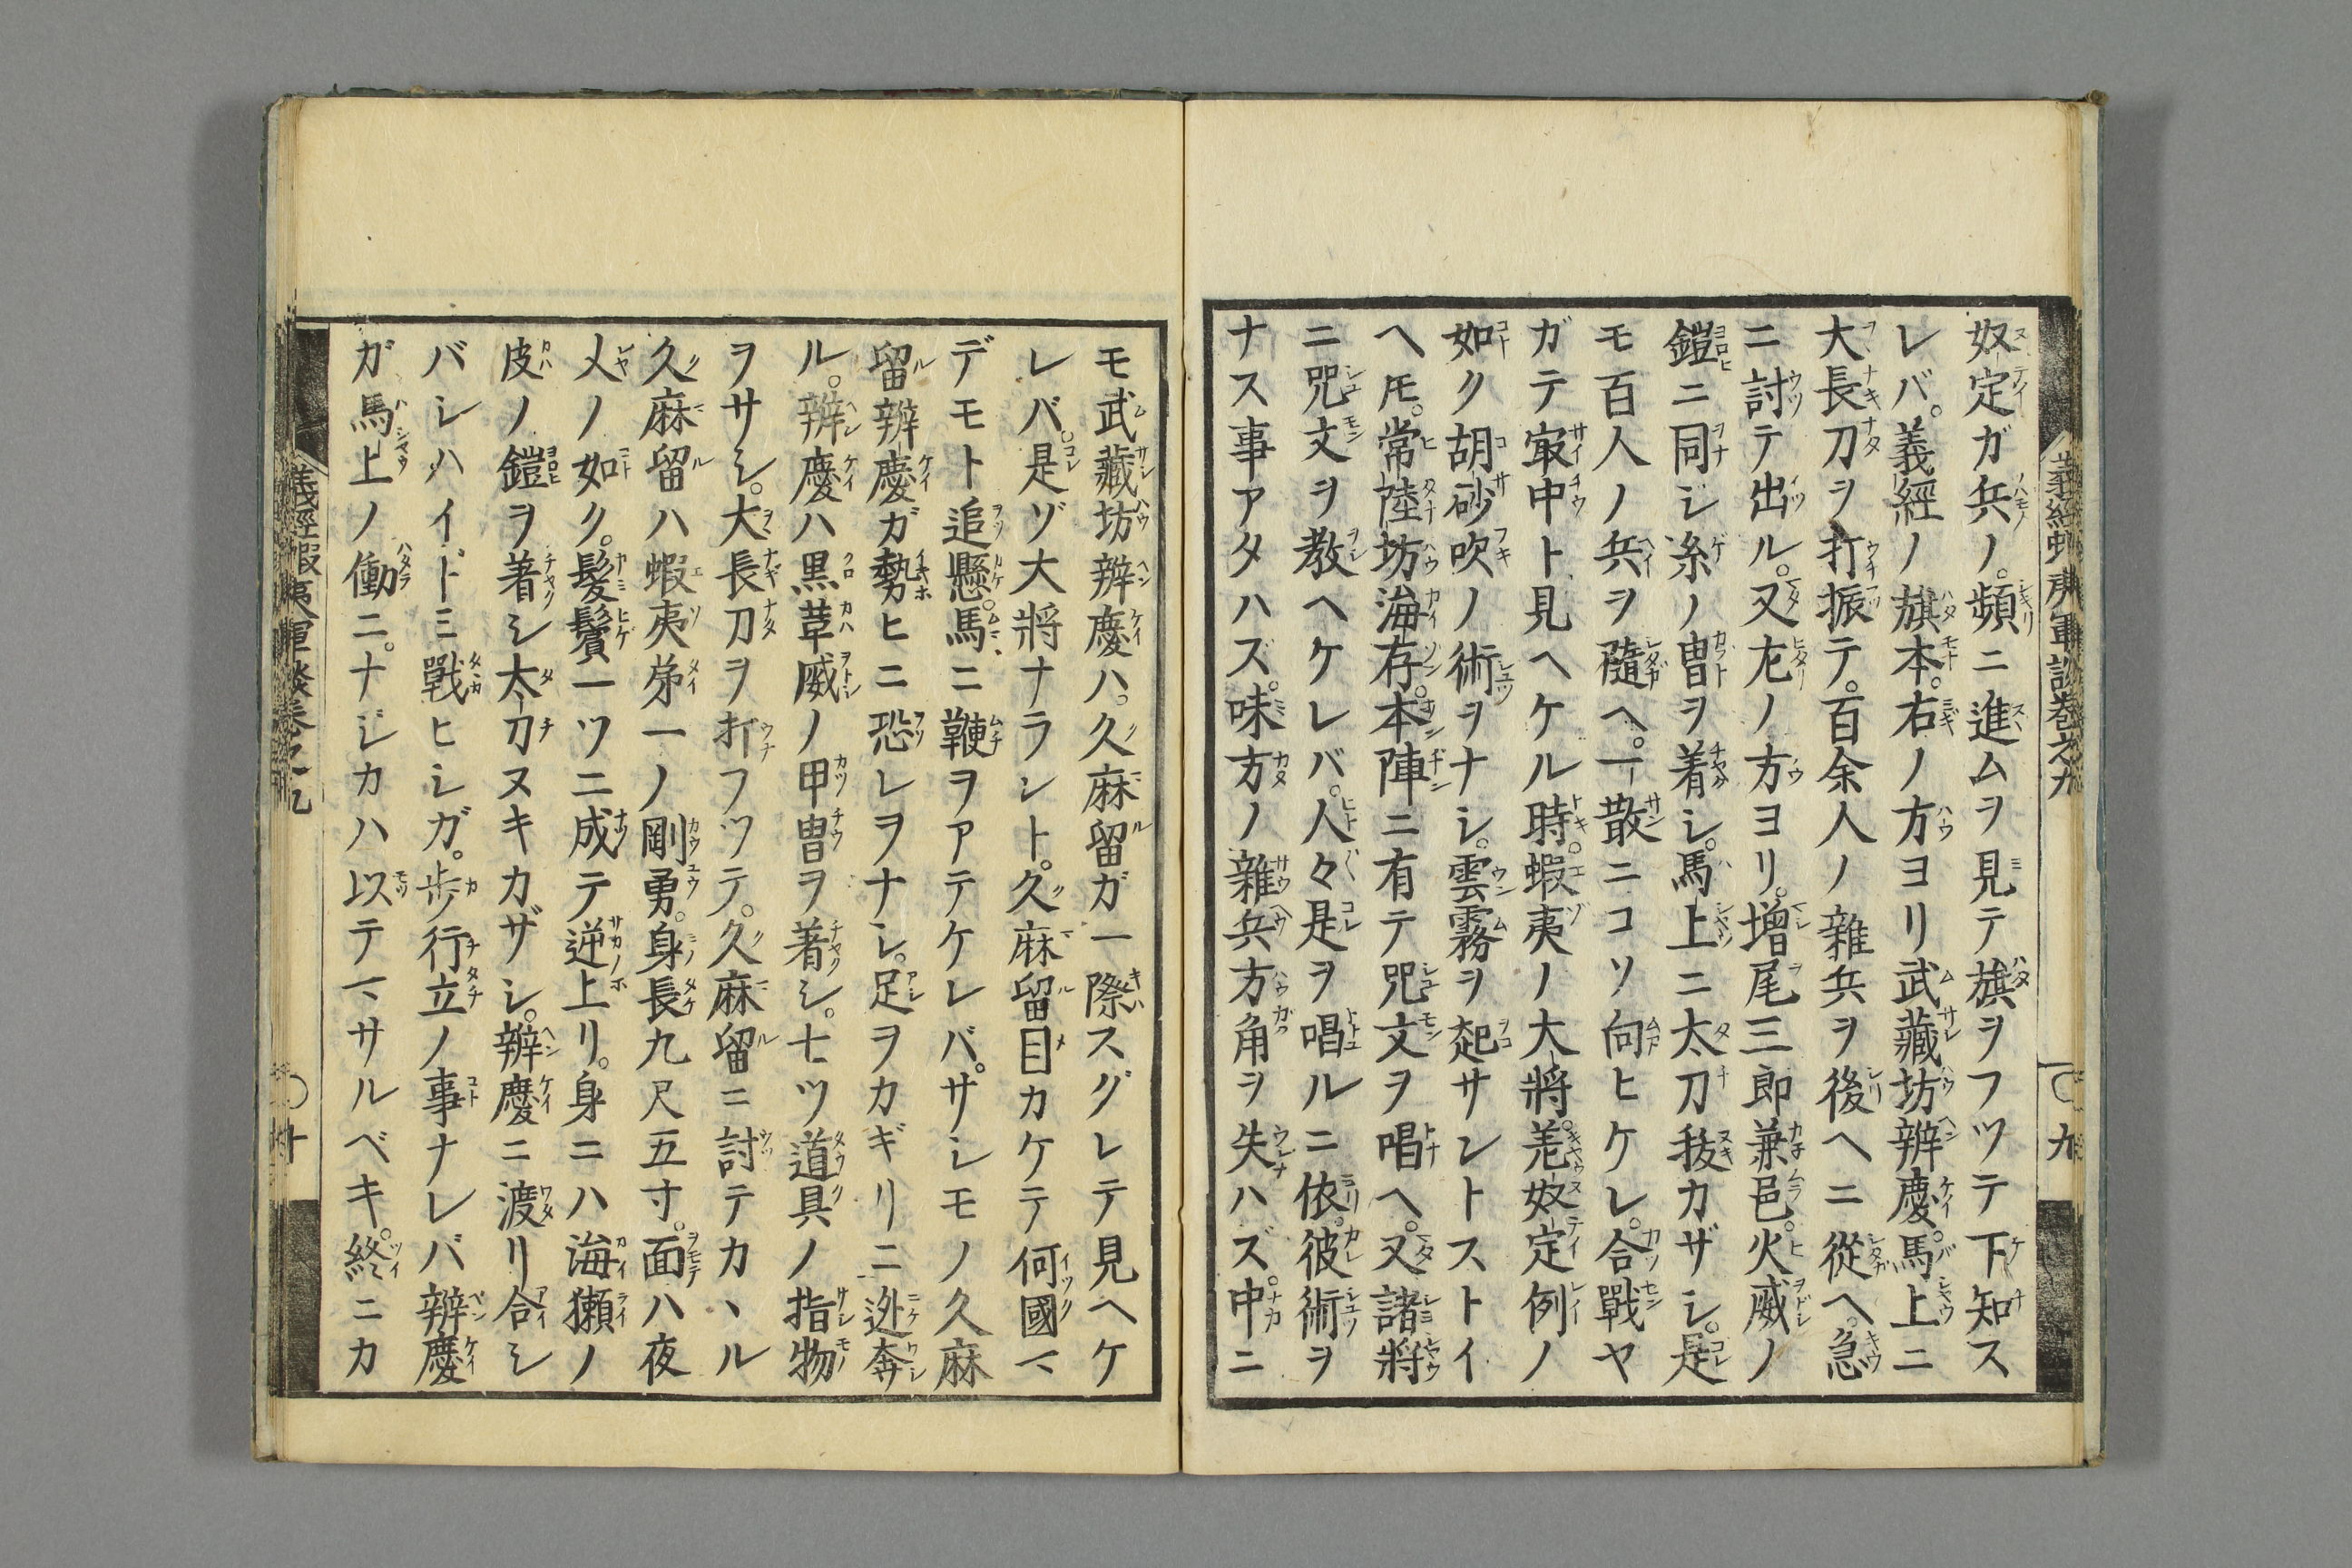 奴定ガ兵ノ。頻ニ進ムヲ見テ旗ヲフツテ下知ス
レバ。義經ノ旗本。右ノ方ヨリ武藏坊辨慶。馬上ニ
大長刀ヲ打振テ。百余人ノ雜兵ヲ後ヘニ從ヘ。急
ニ討テ出ル。又左ノ方ヨリ。增尾三郎兼邑。火威ノ
鎧ニ同シ糸ノ冑ヲ着シ。馬上ニ太刀拔カザシ。是
モ百人ノ兵ヲ隨ヘ。一散ニコソ向ヒケレ。合戰ヤ
ガテ冣中ト見ヘケル時。蝦夷ノ大將。羌奴定例ノ
如ク胡砂吹ノ術ヲナシ。雲霧ヲ起サントストイ
ヘ𪜈。常陸坊海存。本陣ニ有テ咒文ヲ唱ヘ。又諸將
ニ咒文ヲ教ヘケレバ。人々是ヲ唱ルニ依。彼術ヲ
ナス事アタハズ。味方ノ雜兵方角ヲ失ハズ。中ニ
モ武藏坊辨慶ハ。久麻留ガ一際スグレテ見ヘケ
レバ。是ゾ大將ナラント。久麻留目カケテ何國マ
デモト追懸。馬ニ鞭ヲアテケレバ。サシモノ久麻
留辨慶ガ勢ヒニ恐レヲナシ。足ヲカギリニ迯奔
ル。辨慶ハ黒草威ノ甲冑ヲ着シ。七ツ道具ノ指物
ヲサシ。大長刀ヲ打フツテ。久麻留ニ討テカヽル
久麻留ハ蝦夷㐧一ノ剛勇。身長九尺五寸。面ハ夜
叉ノ如ク。髮鬚一ツニ成テ逆上リ。身ニハ海獺ノ
皮ノ鎧ヲ着シ太刀ヌキカザシ。辨慶ニ渡リ合シ
バシハイドミ戰ヒシガ。歩行立ノ事ナレバ辨慶
ガ馬上ノ働ニ。ナジカハ以テマサルベキ。終ニカ
義經蝦夷軍談卷之九
〇九
義經蝦夷軍談卷之九
〇十